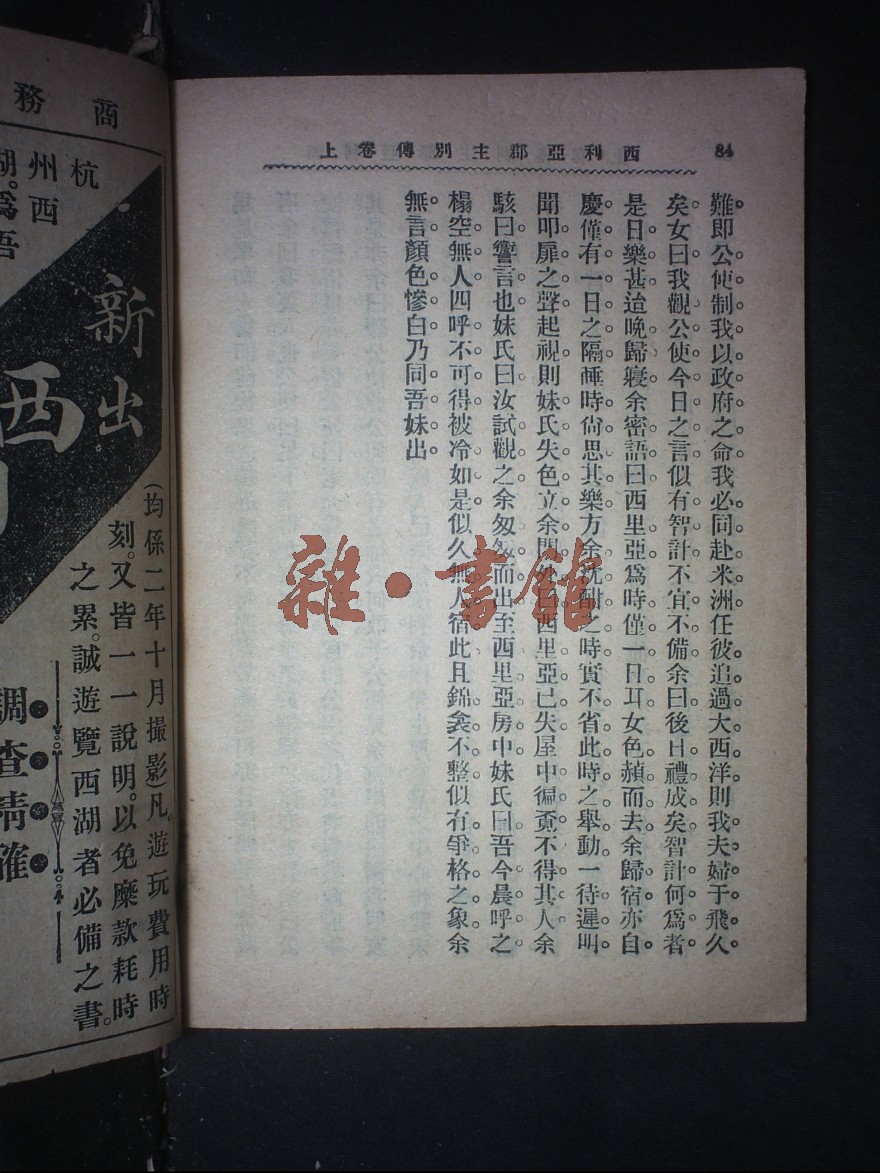 84
西利亞郡主別傳卷上
難即公使制我以政府之命我必同赴米洲任彼追過大西洋則我夫婦于飛久
矣女曰我觀公使今日之言似有智計不宜不備余曰後日禮成矣智計何爲者
是日樂甚迨晚歸寢余密語曰西里亞爲時僅一日耳女色赬而去余歸宿亦自
慶僅有一日之隔睡時尙思其樂方余沈酣之時實不省此時之舉動一待遲明
聞叩扉之聲起視則妹氏失色立余門外曰西里亞已失屋中徧覔不得其人余
駭曰讏言也妹氏曰汝試觀之余匆匆而出至西里亞房中妹氏曰吾今晨呼之
榻空無人四呼不可得被冷如是似久無人宿此且錦衾不整似有爭格之象余
無言顏色慘白乃同吾妹出
雜·書館
商務
杭州西
湖。爲吾
新出
西
(均係二年十月攝影)凡遊玩費用時
刻。又皆一一說明。以免糜款耗時
之累。誠遊覽西湖者必備之書。
調查精確